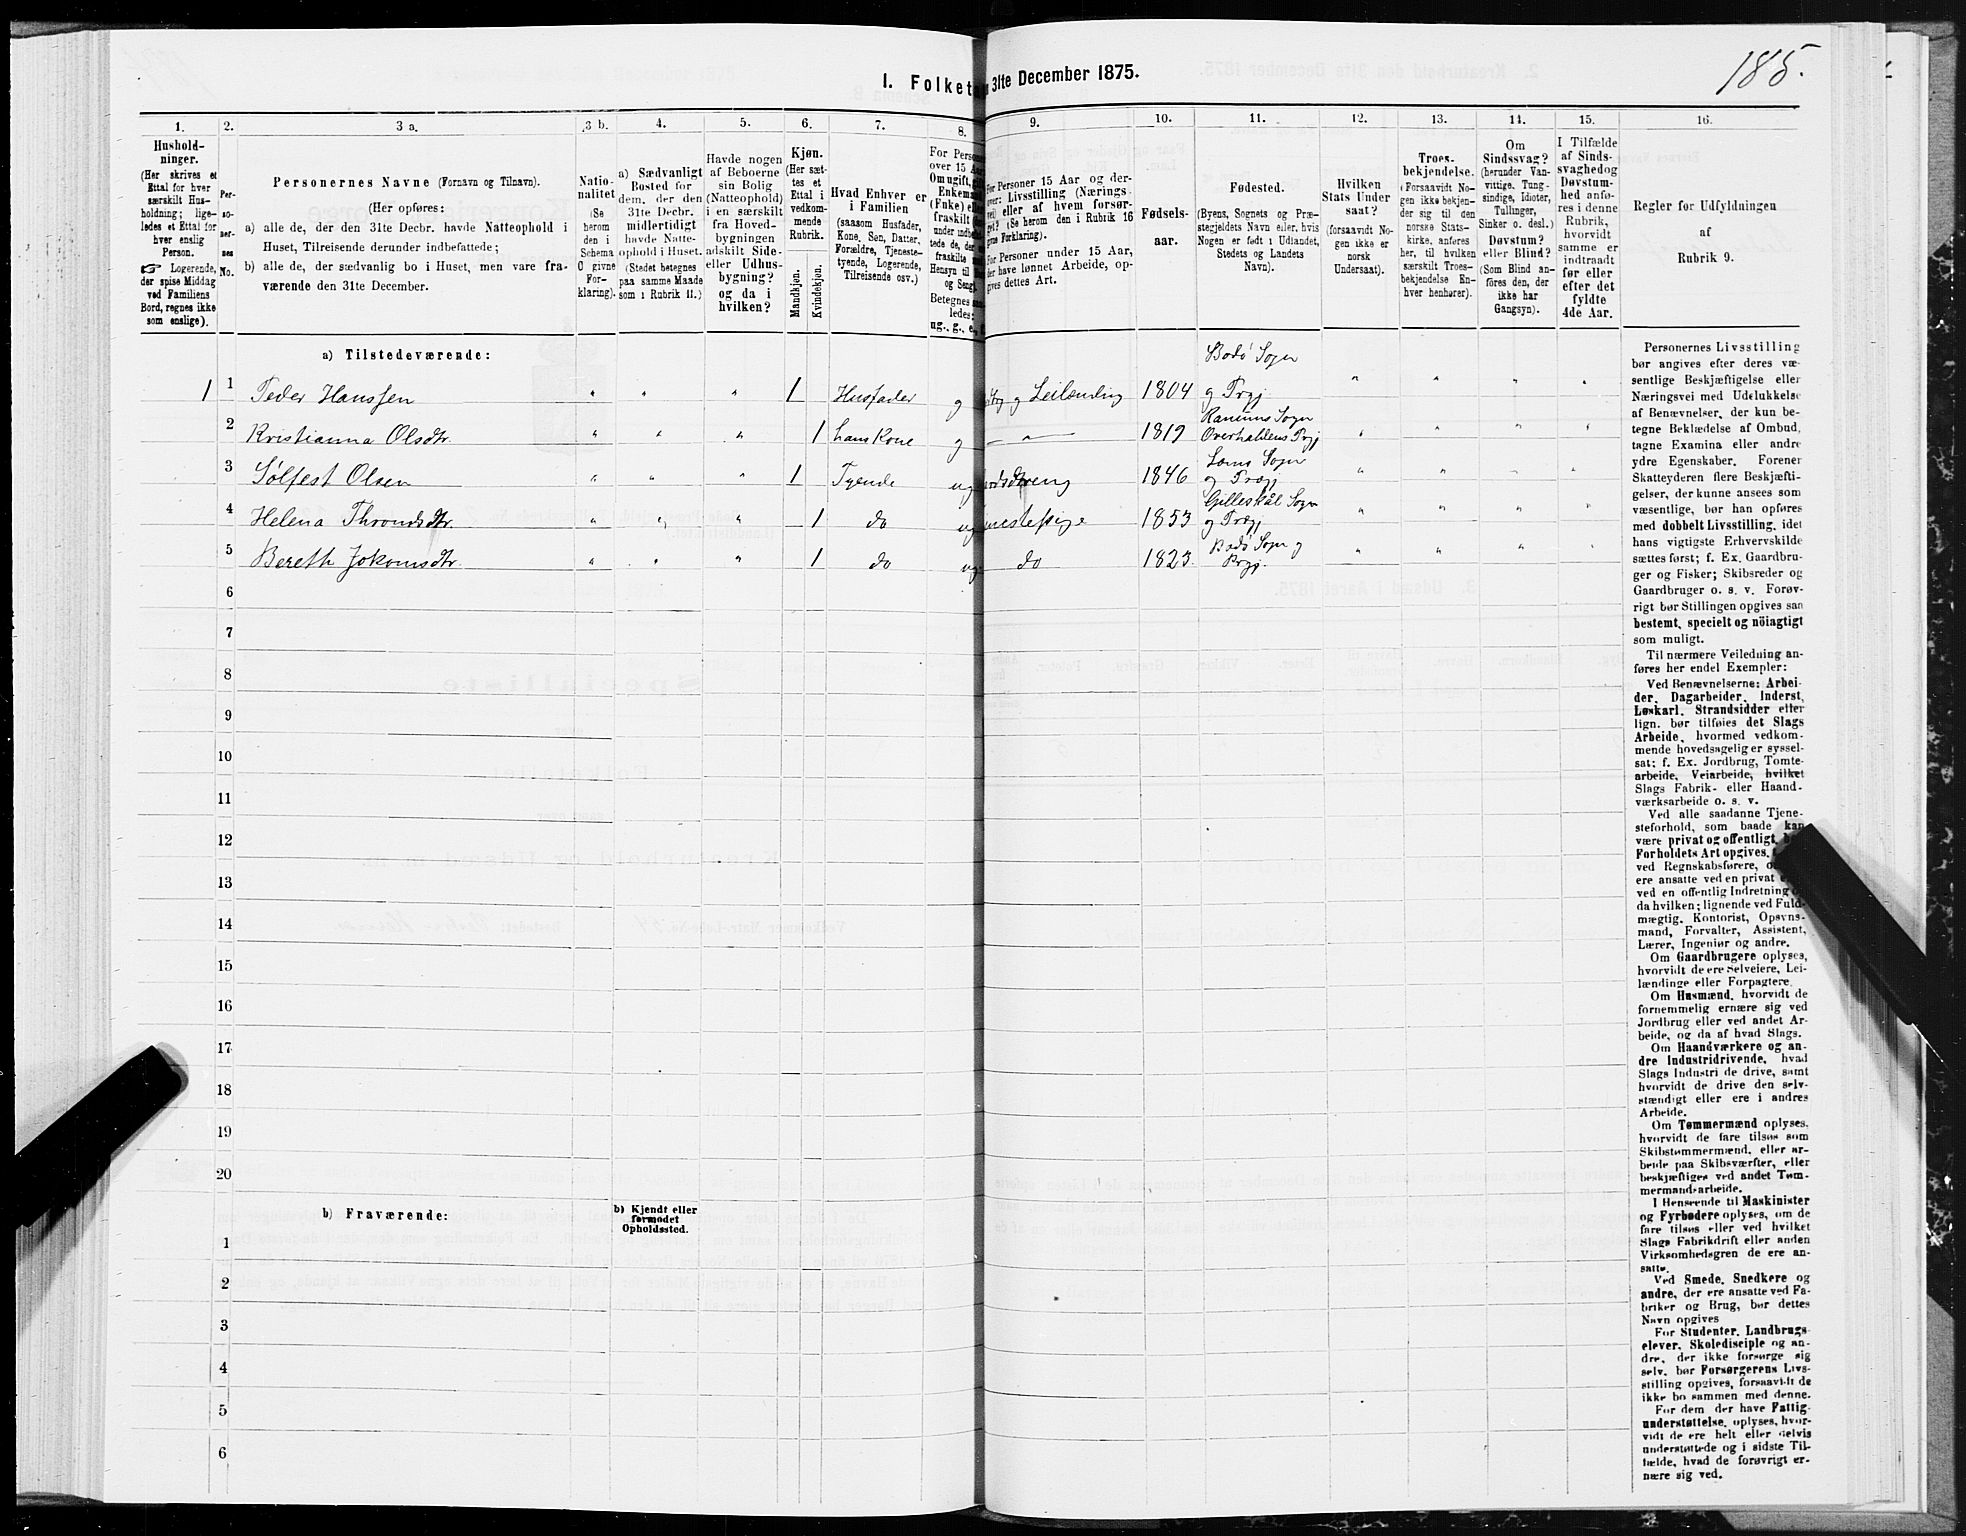 185.
I. Folket
31te December 1875.
1.
2.
3 a.
3 b.
4.
5.
6.
7.
8.
9.
10.
11.
12.
13.
14.
15.
16.
Hushold-
ninger.
(Her skrives et
Ettal for hver
særskilt Hus-
holdning; lige-
ledes et Ettal for
hver enslig
Person.
☞ Logerende,
der spise Middag
ved Familiens
Bord, regnes ikke
som enslige).
Per-
so-
ner-
nes
No.
Personernes Navne (Fornavn og Tilnavn).
(Her opføres:
a) alle de, der den 31te Decbr. havde Natteophold i
Huset, Tilreisende derunder indbefattede;
b) alle de, der sædvanlig bo i Huset, men vare fra-
værende den 31te December.
Natio-
nalitet
(Se
herom
den i
Schema
O givne
For-
klaring).
a) Sædvanligt
Bosted for
dem, der den
31te Decbr.
midlertidigt
havde Natte-
ophold i Huset.
(Stedet betegnes
paa samme Maade
som i Rubrik 11.)
Havde nogen
af Beboerne
sin Bolig
(Natteophold)
i en særskilt
fra Hoved-
bygningen
adskilt Side-
eller Udhus-
bygning?
og da i
hvilken?
Kjøn.
(Her sæt-
tes et
Ettal i
vedkom-
mende
Rubrik.
Mandkjøn.
Kvindekjøn.
Hvad Enhver er
i Familien
(saasom Husfader,
Kone, Søn, Datter,
Forældre, Tjeneste-
tyende, Logerende,
Tilreisende osv.)
For Perso
over 15 Aar
Om ugift, gift
Enkemand
(Enke) eller
fraskilt
Betegnes saa-
ledes:
ug., g., e., f.
For Personer 15 Aar og der-
over: Livsstilling (Nærings-
vei) eller af hvem forsør-
get? (Se herom den i Rubrik 16
givne Forklaring).
For Personer under 15 Aar,
der have lønnet Arbeide, op-
gives dettes Art.
Fødsels-
aar.
Fødested.
(Byens, Sognets og Præ-
stegjeldets Navn eller, hvis
Nogen er født i Udlandet,
Stedets og Landets
Navn).
Hvilken
Stats Under
saat?
(forsaavidt No-
gen ikke er
norsk
Undersaat).
Troes-
bekjendelse.
(Forsaavidt No-
gen ikke bekjen-
der sig til den
norske Stats-
kirke, anføres
her, til hvilken
særskilt Troes-
bekjendelse En-
hver henhører).
Om
Sindssvag?
(herunder Van-
vittige, Tung-
sindige, Idioter,
Tullinger,
Sinker o. desl.)
Døvstum?
eller Blind?
(Som Blind an-
føres den, der
ikke har
Gangsyn).
I Tilfælde
af Sinds-
svaghed og
Døvstum-
hed anfø-
res i denne
Rubrik,
hvorvidt
samme er
indtraadt
før eller
efter det
fyldte
4de Aar.
Regler for Udfyldningen
af
Rubrik 9.
a) Tilstedeværende:
Bodö Sogn
1 1 Peder Hanssen " " " 1 Husfader g og Leilænding 1804 og Prgj " " " "
Ranums Sogn
2 Kristianna Olsdtr. " " " 1 hans Kone g — " — 1819 Overhaldens Prgj " " " "
Loms Sogn
3 Sølfest Olsen " " " 1 Tyende ug 1846 og Prgj " " " "
Gilleskål Sogn
4 Helena Throndsdtr. " " " 1 do ug nestepige 1853 og Prgj " " " "
Bodö Sogn og
5 Bereth Jokomsdtr. " " " 1 do ug do 1823. Prgj. " " " "
6
7
8
9
10
11
12
13
14
15
16
17
18
19
20
b) Fraværende:
b) Kjendt eller
formodet
Opholdssted.
1
2
3
4
5
6
Personernes Livsstilling
bør angives efter deres væ-
sentlige Beskjæftigelse eller
Næringsvei med Udelukkelse
af Benævnelser, der kun be-
tegne Beklædelse af Ombud,
tagne Examina eller andre
ydre Egenskaber. Forener
Skatteyderen flere Beskjæfti-
gelser, der kunne ansees som
væsentlige, bør han opføres
med dobbelt Livsstilling, idet
hans vigtigste Erhvervskilde
sættes først; f. Ex. Gaardbru-
ger og Fisker; Skibsreder og
Gaardbruger o. s. v. Forøv-
rigt bør Stillingen opgives saa
bestemt, specielt og nöiagtigt
som muligt.
Til nærmere Veiledning an-
føres her endel Exempler:
Ved Benævnelserne: Arbei-
der, Dagarbeider, Inderst,
Løskarl, Strandsidder eller
lign. bør tilføies det Slags
Arbeide, hvormed vedkom-
mende hovedsagelig er syssel-
sat; f. Ex. Jordbrug, Tomte-
arbeide, Veiarbeide, hvilket
Slags Fabrik- eller Haand-
værksarbeide o. s. v.
Ved alle saadanne Tjene-
steforhold, som baade kan
være privat og offentligt, b
Forholdets Art opgives,
ved Regnskabsførere,
ere ansatte ved en privat
ved en offentlig Indretning
da hvilken; lignende ved Fuld-
mægtig, Kontorist, Opsyns-
mand, Forvalter, Assistent,
Lærer, Ingeniør og andre.
Om Gaardbrugere oplyses,
hvorvidt de ere Selveiere, Lei-
lændinge eller Forpagtere.
Om Husmænd, hvorvidt de
fornemmelig ernære sig ved
Jordbrug eller ved andet Ar-
beide, og da af hvad Slags.
Om Haandværkere og an-
dre Industridrivende, hvad
Slags Industri de drive, samt
hvorvidt de drive den selv-
stændigt eller ere i andres
Arbeide.
Om Tømmermænd oplyses,
hvorvidt de fare tilsøs som
Skibstømmermænd, eller ar-
beide paa Skibsværfter, eller
beskjæftiges ved andet Tøm-
mermandsarbeide.
I Henseende til Maskinister
og Fyrbødere oplyses, om de
fare tilsøs eller ved hvilket
Slags Fabrikdrift eller anden
Virksomhedsgren de ere an-
satte.
Ved Smede, Snedkere og
andre, der ere ansatte ved Fa-
briker og Brug, bør dettes
Navn opgives
For Studenter, Landbrugs-
elever, Skoledisciple og an-
dre, der ikke forsørge sig
selv, bør Forsørgerens Livs-
stilling opgives, forsaavidt de
ikke bo sammen med denne.
For dem der have Fattig-
understøttelse, oplyses, hvor-
vidt de ere helt eller delvis
understøttede og i sidste Til-
fælde, hvad de forøvrigt er-
nære sig ved.